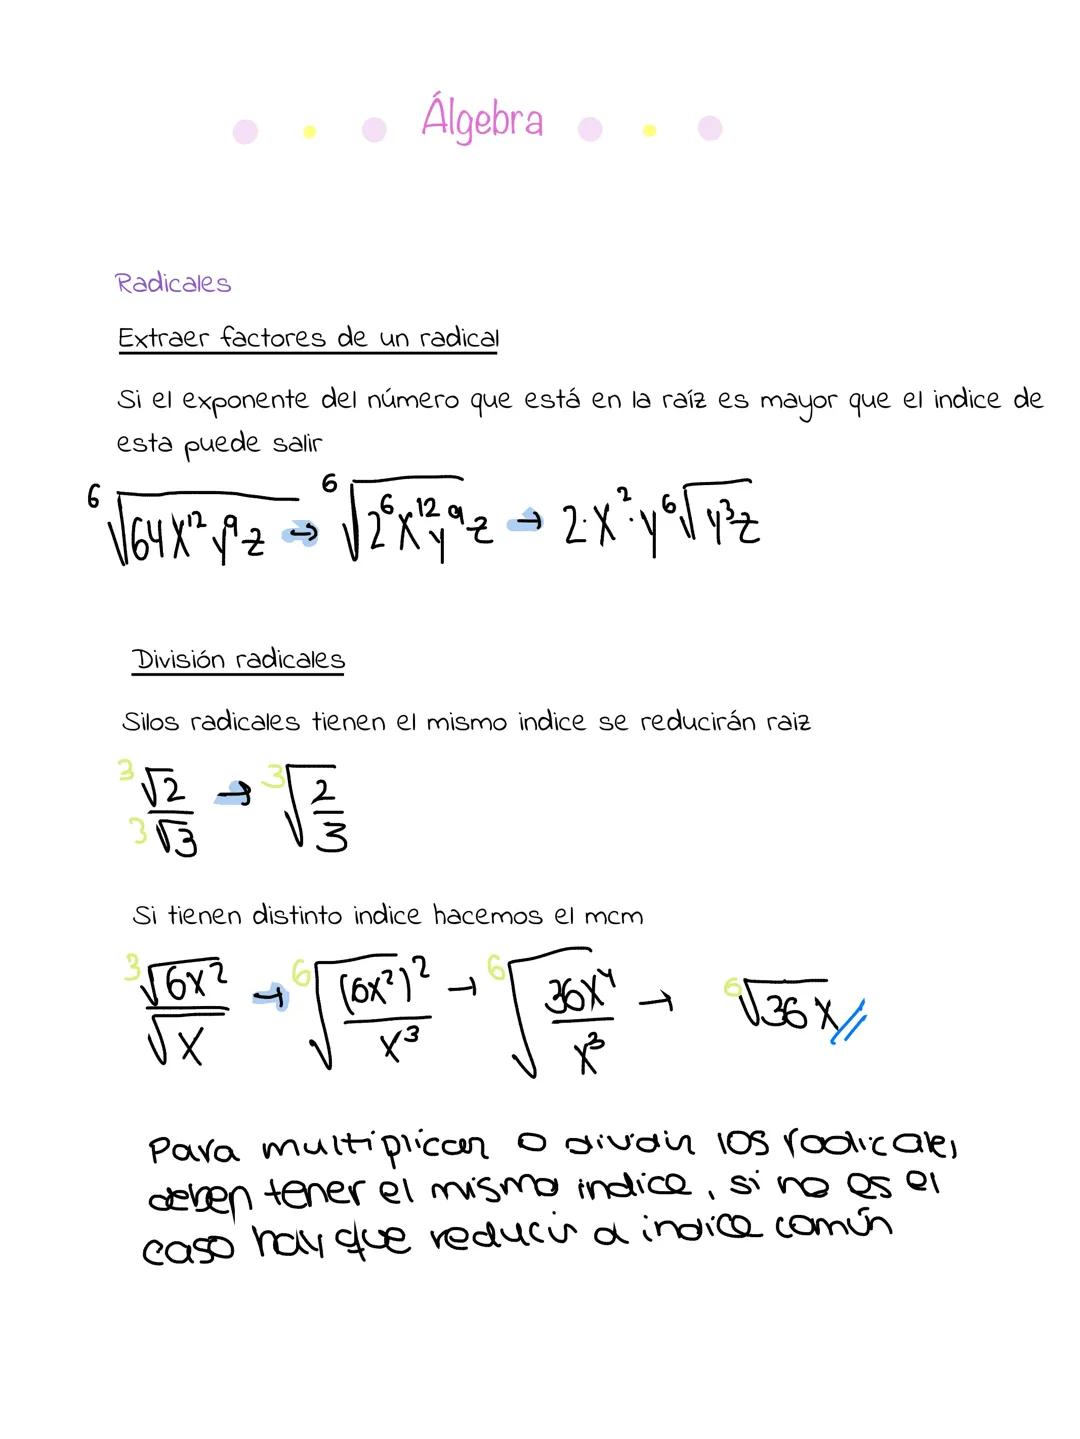 Álgebra
Radicales
Extraer factores de un radical
Si el exponente del número que está en la raíz es mayor que el indice de
esta puede salir
⁶√(64x¹²y⁹z) → ⁶√(2⁶x¹²y⁹z) → 2·x²·y ⁶√(y³z)
División radicales
Silos radicales tienen el mismo indice se reducirán raiz
³√2 / ³√3 → ³√(2/3)
Si tienen distinto indice hacemos el mcm
³√(6x²) / √x → ⁶√((6x²)²/x³) → ⁶√(36x⁴/x³) → ⁶√(36x)//
Para multiplicar o dividir los radicales
deben tener el mismo indice, si no es el
caso hay que reducir a indice común